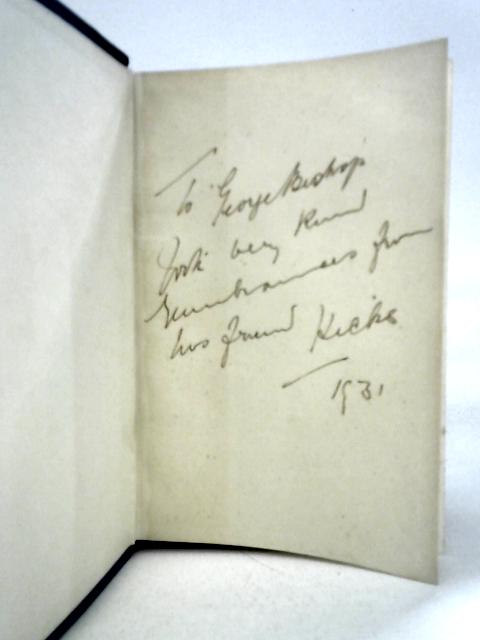 To George Bishop
with very kind
remembrances from
his friend Hicks
1931